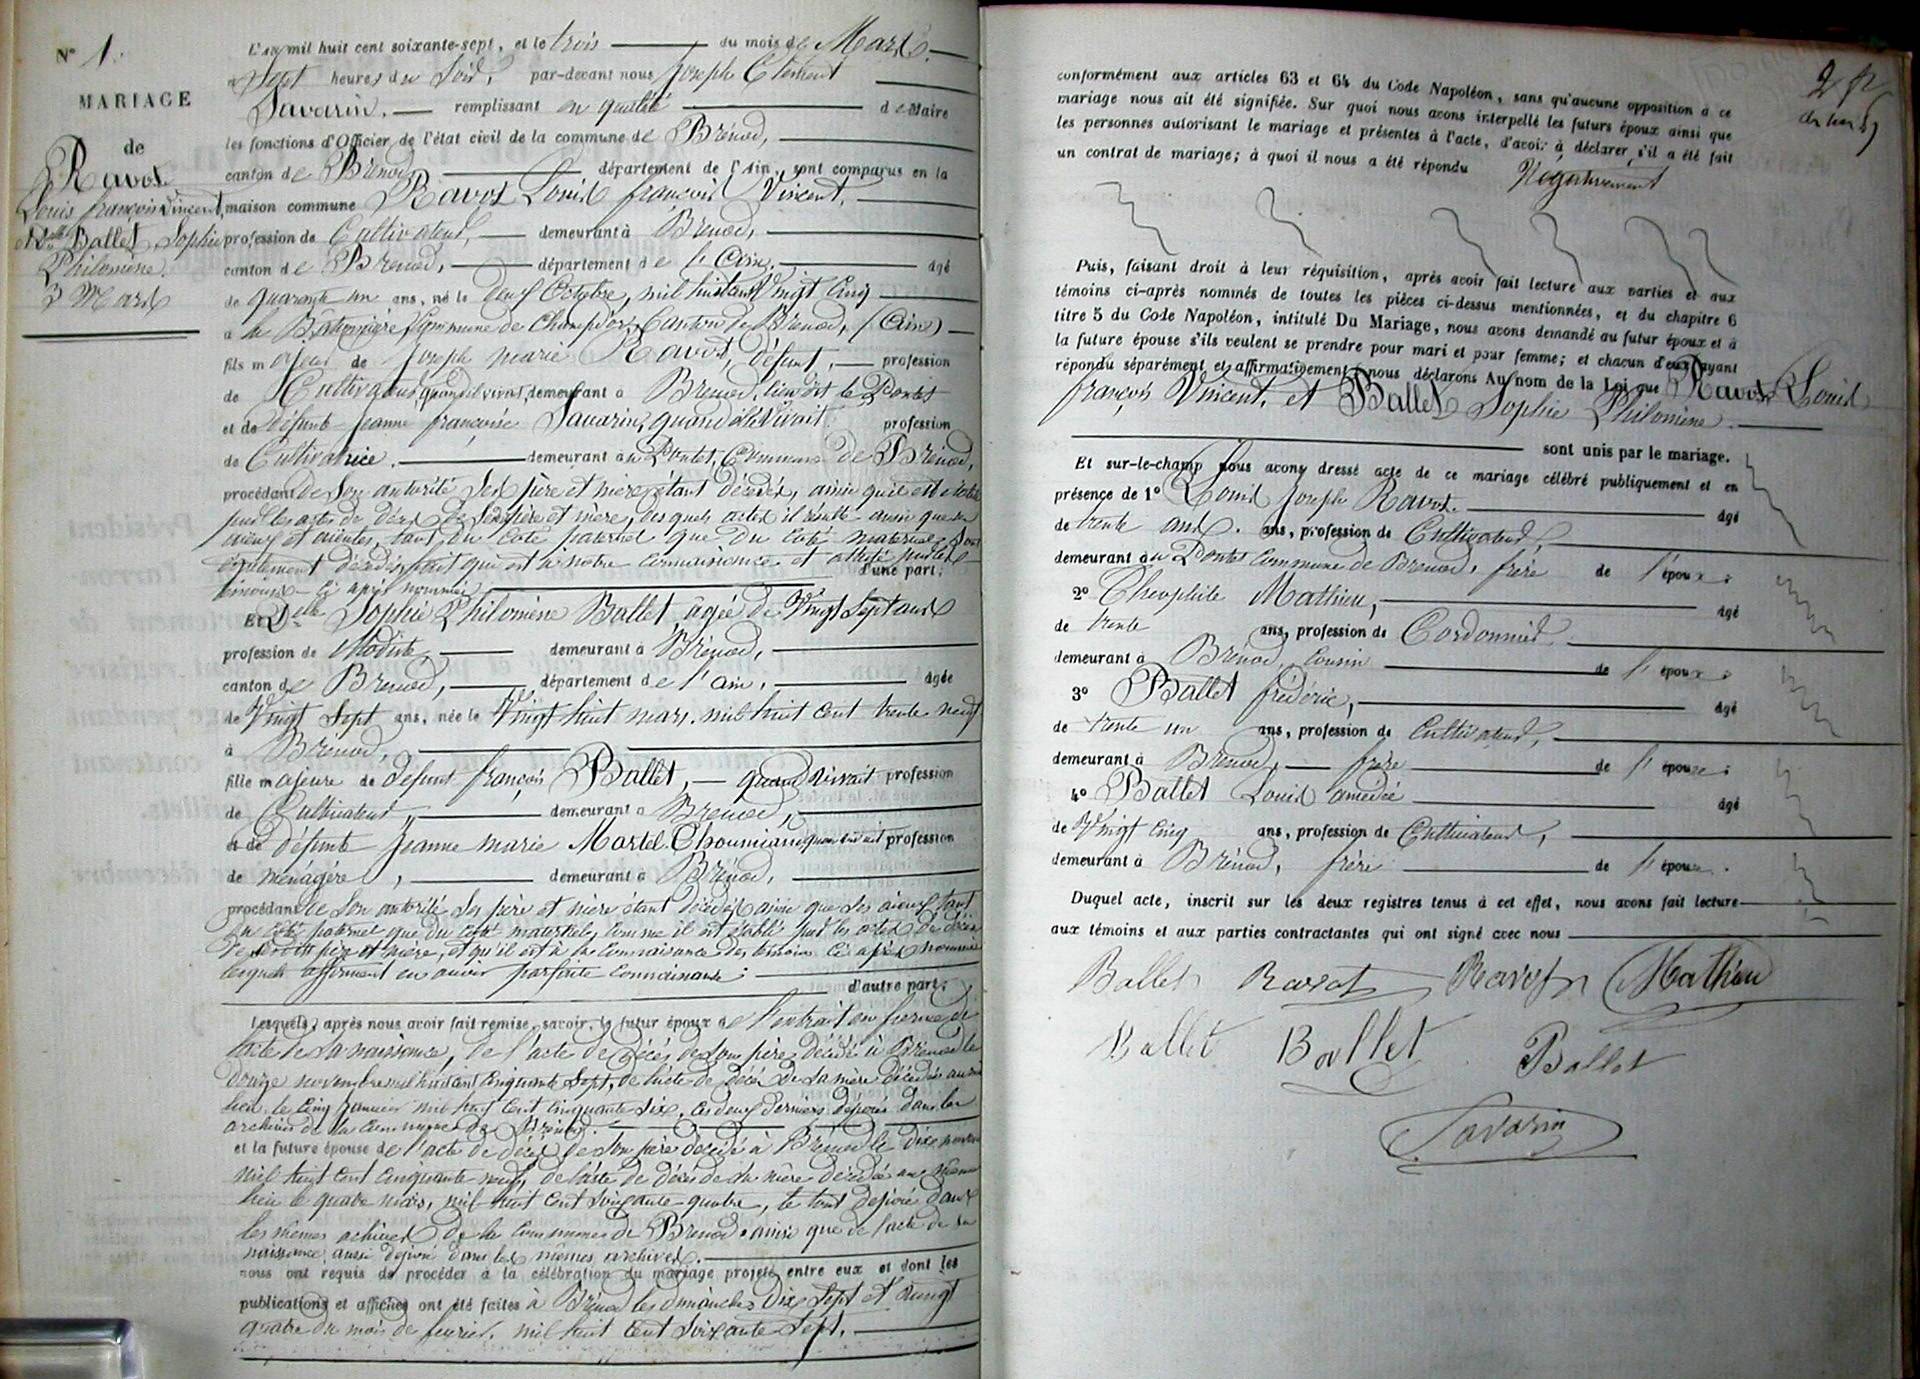 N° 1.
MARIAGE
de
Ravot
Louis françois Vincent,
et Delle Ballet Sophie
Philomène.
3 Mars
L'an mil huit cent soixante-sept, et le trois du mois de Mars.
a Sept heures du Soir, par-devant nous Joseph Clément
Savarin. remplissant en qualité de Maire
les fonctions d'Officier de l'état civil de la commune de Brénod,
canton de Brénod, département de l'Ain, sont comparus en la
maison commune Ravot Louis françois Vincent,
profession de Cultivateur, demeurant à Brénod,
canton de Brénod, département de l'Ain, âgé
de quarante un ans, né le deux Octobre, mil huit cent Vingt Cinq
a la Commune de Champdor, Canton de Brénod, (Ain)
fils majeur de Joseph marie Ravot, défunt, profession
de Cultivateur quand il vivait, demeurant à Brénod, lieu dit le Pontet
et de défunte Jeanne françoise Savarin, quand elle Vivait profession
de Cultivatrice. demeurant au Pontet, Commune de Brénod,
procédant de Son autorité Ses père et mère étant décédés, ainsi qu'il est établi
par les actes de décès de Ses père et mère, desquels actes il résulte aussi que ses
aïeux et aïeules, tant du côté paternel que du côté maternel, Sont
également décédés, fait qui est à notre connaissance et attesté par les
témoins ci après nommés d'une part;
Et Delle Sophie Philomène Ballet, âgée de Vingt Sept ans
profession de Modiste, demeurant à Brénod,
canton de Brénod, département de l'ain, âgée
de Vingt Sept ans, née le Vingt huit mars, mil huit cent trente neuf
à Brénod,
fille majeure de défunt françois Ballet, quand vivait profession
de Cultivateur demeurant à Brénod,
et de défunte Jeanne marie Martel Choumian quand vivait profession
de ménagère, demeurant à Brénod,
procédant de Son autorité Ses père et mère étant décédés ainsi que Ses aïeux tant
du côté paternel que du côté maternel, comme il est établi par les actes de décès
de père et mère, et qu'il est à la connaissance des témoins ci après nommés
lesquels affirment en avoir parfaite connaissance;
d'autre part;
Lesquels, après nous avoir fait remise, savoir, le futur époux de l'extrait en forme de
l'acte de Sa naissance, de l'acte de décès de Son père décédé à Brénod le
douze novembre mil huit cent Cinquante Sept, de l'acte de décès de Sa mère décédée au même
lieu, le Cinq Janvier mil huit Cent Cinquante Six, Ces deux derniers déposés dans les
archives de la Commune de Brénod.
et la future épouse de l'acte de décès de Son père décédé à Brénod le
mil huit Cent Cinquante neuf, de l'acte de décès de Sa mère décédée au même
lieu le quatre mars, mil huit Cent Soixante quatre, le tout déposé dans
les mêmes archives de la Commune de Brénod ainsi que de l'acte de Sa
naissance, aussi déposé dans les mêmes archives.
nous ont requis de procéder à la célébration du mariage projeté entre eux et dont les
publications et affiches ont été faites à Brénod les dimanches Dix Sept et Vingt
quatre du mois de février, mil huit Cent Soixante Sept,
conformément aux articles 63 et 64 du Code Napoléon, sans qu'aucune opposition à ce
mariage nous ait été signifiée. Sur quoi nous avons interpellé les futurs époux ainsi que
les personnes autorisant le mariage et présentes à l'acte, d'avoir à déclarer s'il a été fait
un contrat de mariage; à quoi il nous a été répondu Négativement
Puis, faisant droit à leur réquisition, après avoir fait lecture aux parties et aux
témoins ci-après nommés de toutes les pièces ci-dessus mentionnées, et du chapitre 6
titre 5 du Code Napoléon, intitulé Du Mariage, nous avons demandé au futur époux et à
la future épouse s'ils veulent se prendre pour mari et pour femme; et chacun d'eux ayant
répondu séparément et affirmativement, nous déclarons Au nom de la Loi que Ravot Louis
françois Vincent, et Ballet Sophie Philomène.
sont unis par le mariage.
Et sur-le-champ nous avons dressé acte de ce mariage célébré publiquement et en
présence de 1° Louis Joseph Ravot. âgé
de trente ans. ans, profession de Cultivateur,
demeurant au Pontet Commune de Brénod, frère de l'époux;
2° Théophile Mathieu, âgé
de trente ans, profession de Cordonnier
demeurant à Brénod, cousin de l'époux;
3° Ballet frédéric, âgé
de trente un ans, profession de Cultivateur,
demeurant à Brénod, frère de l'épouse;
4° Ballet Louis amédée âgé
de Vingt Cinq ans, profession de Cultivateur,
demeurant à Brénod, frère de l'épouse.
Duquel acte, inscrit sur les deux registres tenus à cet effet, nous avons fait lecture
aux témoins et aux parties contractantes qui ont signé avec nous
Ballet Ravot Ravot Mathieu
Ballet Ballet Ballet
Savarin